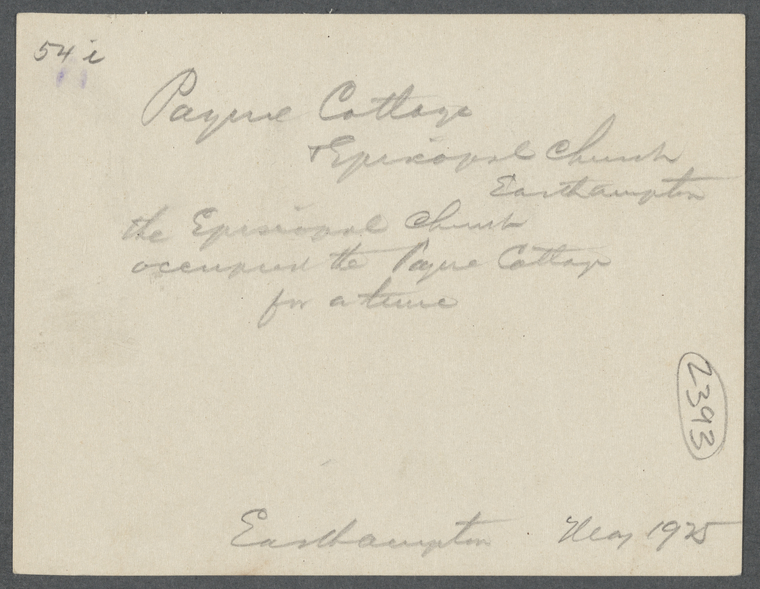 54 i
Payne Cottage
+ Episcopal Church
Easthampton
the Episcopal Church
occupied the Payne Cottage
for a time
2393
Easthampton May 1925